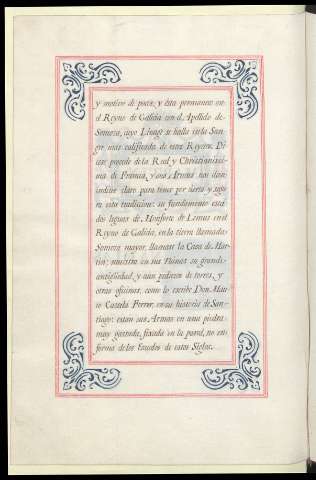 y motivo de poner, y esta permanece en
el Reyno de Galicia con el Apellido de
Somoza, cuyo Linage se halla en la San-
gre mas calificada de estos Reynos. Di-
cese procede de la Real y Christianissi-
ma de Francia, y sus Armas nos dan
indicio claro para tener por cierta y segu-
ra esta tradicion: su fundamento está
dos leguas de Monforte de Lemus en el
Reyno de Galicia, en la tierra llamada
Somoza mayor, llamase la Casa de Mar-
tin: muestra en sus Ruinas su grande
antigüedad, y aun pedazos de torres, y
otras oficinas, como lo escribe Don Mau-
ro Castela Ferrer, en su historia de San-
tiago: estan sus Armas en una piedra
muy gastada, fixada en la pared, no en
forma de los Escudos de estos Siglos.